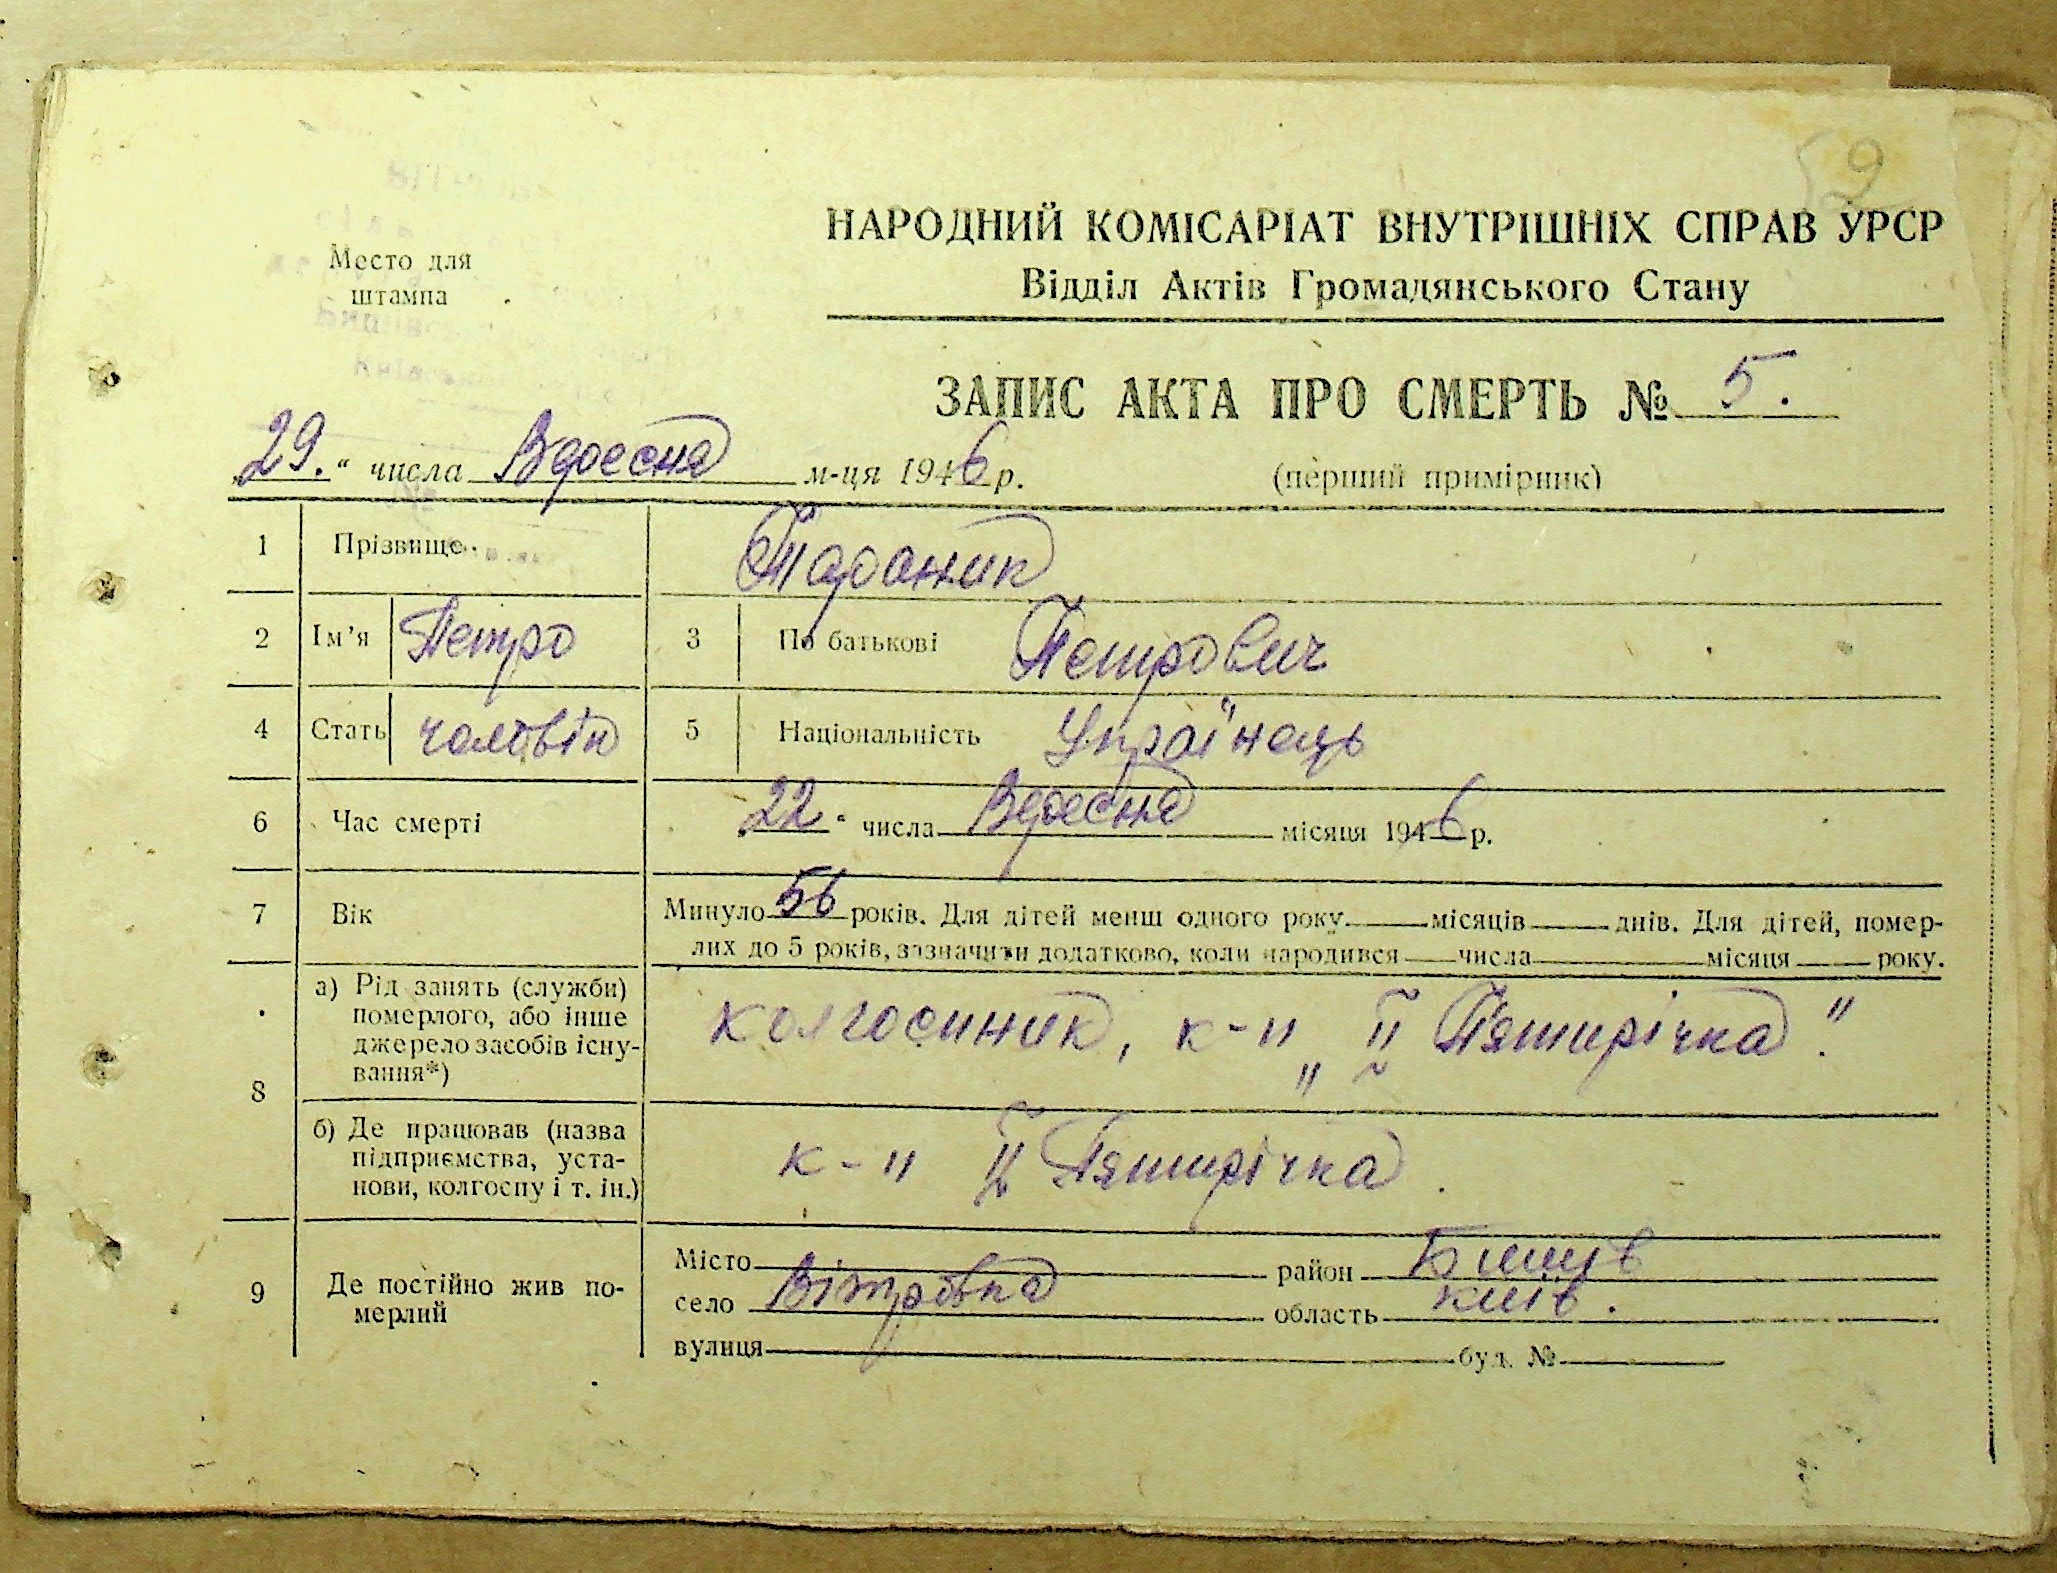 52
НАРОДНИЙ КОМІСАРІАТ ВНУТРІШНІХ СПРАВ УРСР
Место для
штампа
Відділ Актів Громадянського Стану
ЗАПИС АКТА ПРО СМЕРТЬ № 5.
„29.“ числа Вересня м-ця 1946 р. (перший примірник)
1 Прізвище Тараник
2 Ім’я Петро 3 По батькові Петрович
4 Стать чоловік 5 Національність Українець
6 Час смерті „22.“ числа Вересня місяця 1946 р.
7 Вік Минуло 56 років. Для дітей менш одного року місяців днів. Для дітей, помер-
лих до 5 років, зазначити додатково, коли народився числа місяця року.
8 а) Рід занять (служби)
померлого, або інше
джерело засобів існу-
вання*)
колгоспник, к-п „ІІ Пятирічка."
б) Де працював (назва
підприємства, уста-
нови, колгоспу і т. ін.)
к-п ІІ Пятирічка.
9 Де постійно жив по-
мерлий
Місто район Бишів
село Вітрівка область київ.
вулиця буд. №